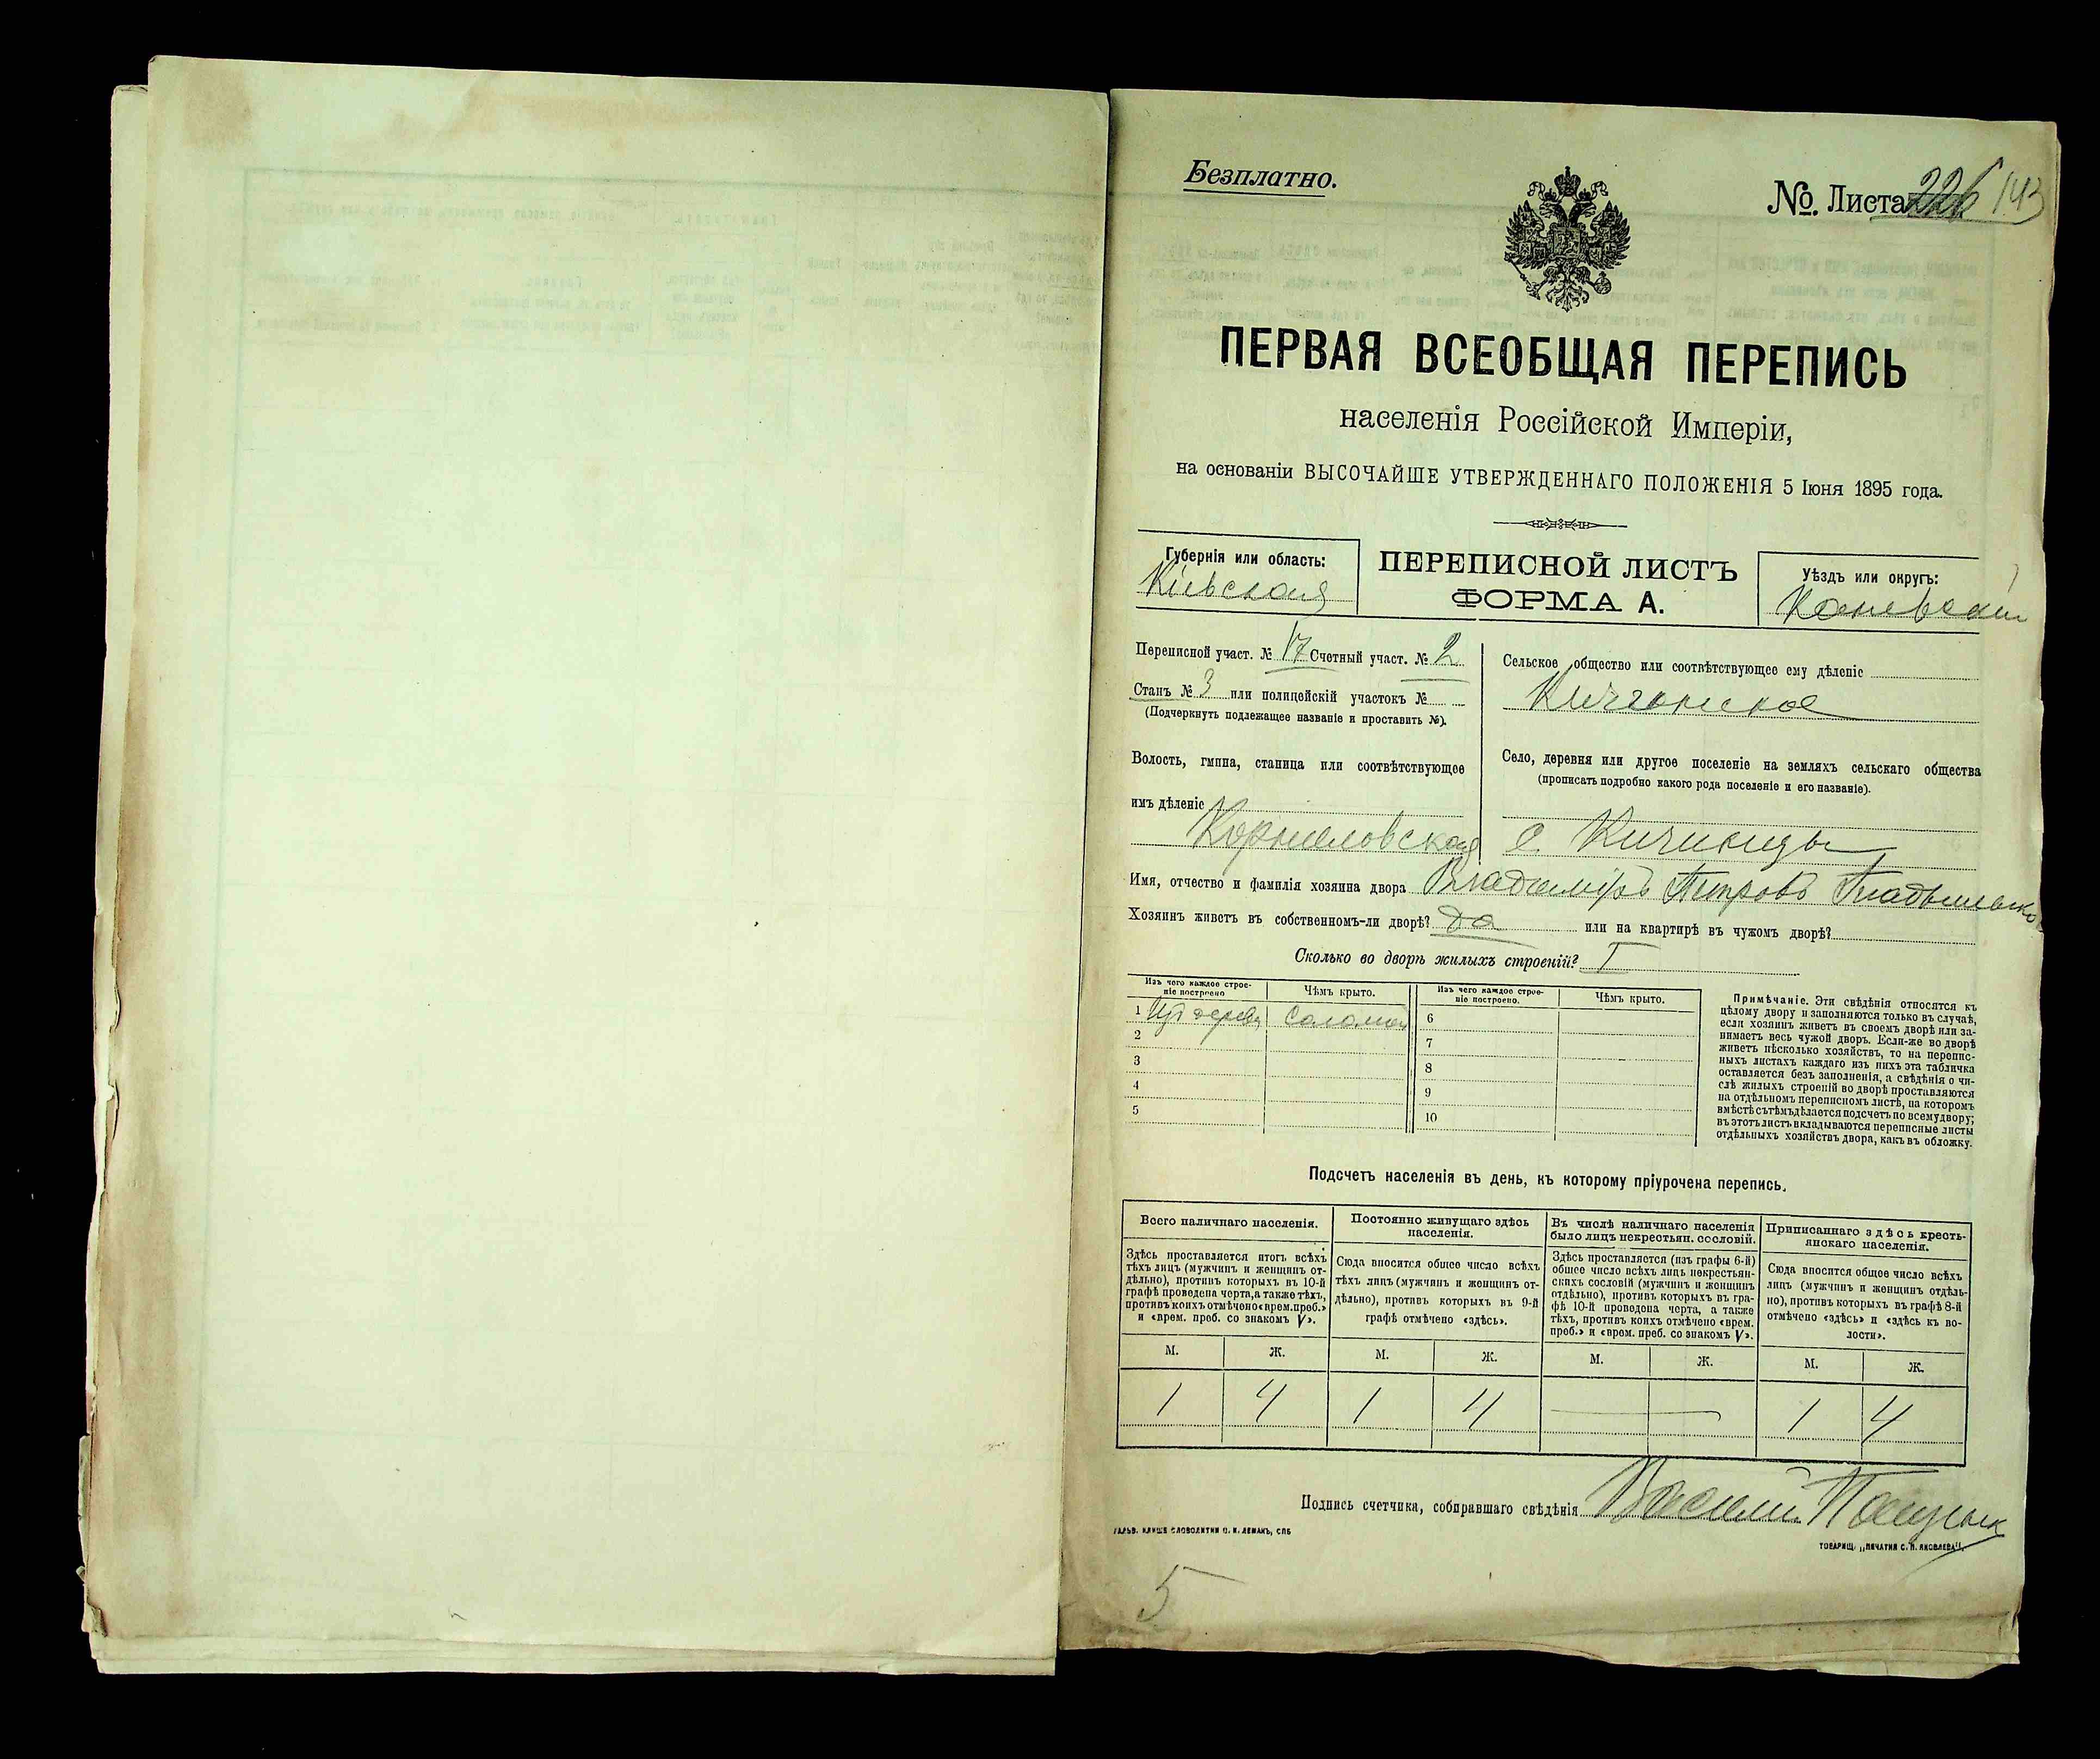 Безплатно.
№. Листа 226 143
ПЕРВАЯ ВСЕОБЩАЯ ПЕРЕПИСЬ
населенія Россійской Имперіи,
на основаніи ВЫСОЧАЙШЕ УТВЕРЖДЕННАГО ПОЛОЖЕНІЯ 5 Іюня 1895 года.
Губернія или область:
Кіевская
ПЕРЕПИСНОЙ ЛИСТЪ
ФОРМА А.
Уѣздъ или округъ:
Каневскій
Переписной участ. № 17 Счетный участ. № 2
Станъ № 3 или полицейскій участокъ №
(Подчеркнуть подлежащее названіе и проставить №).
Волость, гмина, станица или соотвѣтствующее
имъ дѣленіе
Корниловская
Сельское общество или соотвѣтствующее ему дѣленіе
Село, деревня или другое поселеніе на земляхъ сельскаго общества
(прописать подробно какого рода поселеніе и его названіе).
с. Кичинцы
Имя, отчество и фамилія хозяина двора Владиміръ Петровъ
Хозяинъ живетъ въ собственномъ-ли дворѣ? да или на квартирѣ въ чужомъ дворѣ?
Сколько во дворѣ жилыхъ строеній? 1
Изъ чего каждое строе-
ніе построено
Чѣмъ крыто.
Изъ чего каждое строе-
ніе построено.
Чѣмъ крыто.
1 Изъ дерева соломой 6
2 7
3 8
4 9
5 10
Примѣчаніе. Эти свѣдѣнія относятся къ
цѣлому двору и заполняются только въ случаѣ,
если хозяинъ живетъ въ своемъ дворѣ или за-
нимаетъ весь чужой дворъ. Если-же во дворѣ
живетъ нѣсколько хозяйствъ, то на перепис-
ныхъ листахъ каждаго изъ нихъ эта табличка
оставляется безъ заполненія, а свѣдѣнія о чи-
слѣ жилыхъ строеній во дворѣ проставляются
на отдѣльномъ переписномъ листѣ, на которомъ
вмѣстѣ съ тѣмъ дѣлается подсчетъ по всему двору;
въ этотъ листъ вкладываются переписные листы
отдѣльныхъ хозяйствъ двора, какъ въ обложку.
Подсчетъ населенія въ день, къ которому пріурочена перепись.
Всего наличнаго населенія.
Здѣсь проставляется итогъ всѣхъ
тѣхъ лицъ (мужчинъ и женщинъ от-
дѣльно), противъ которыхъ въ 10-й
графѣ проведена черта, а также тѣхъ,
противъ коихъ отмѣчено «врем. преб.»
и «врем. преб. со знакомъ V».
Постоянно живущаго здѣсь
населенія.
Сюда вносится общее число всѣхъ
тѣхъ лицъ (мужчинъ и женщинъ от-
дѣльно), противъ которыхъ въ 9-й
графѣ отмѣчено «здѣсь».
Въ числѣ наличнаго населенія
было лицъ некрестьян. сословій.
Здѣсь проставляется (изъ графы 6-й)
общее число всѣхъ лицъ некрестьян-
скихъ сословій (мужчинъ и женщинъ
отдѣльно), противъ которыхъ въ гра-
фѣ 10-й проведена черта, а также
тѣхъ, противъ коихъ отмѣчено «врем.
преб.» и «врем. преб. со знакомъ V».
Приписаннаго здѣсь кресть-
янскаго населенія.
Сюда вносится общее число всѣхъ
лицъ (мужчинъ и женщинъ отдѣль-
но), противъ которыхъ въ графѣ 8-й
отмѣчено «здѣсь» и «здѣсь къ во-
лости».
М. Ж. М. Ж. М. Ж. М. Ж.
1 4 1 4 — 1 4
Подпись счетчика, собиравшаго свѣдѣнія
ГАЛЬВ. КЛИШЕ СЛОВОЛИТНИ О. И. ЛЕМАНЪ, СПБ
ТОВАРИЩ. „ПЕЧАТНЯ С. П. ЯКОВЛЕВА".
5